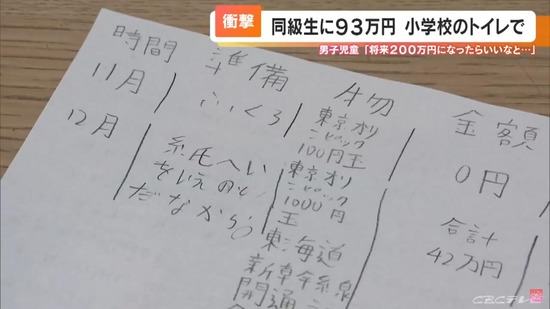 衝撃
同級生に93万円 小学校のトイレで
男子児童「将来200万円になったらいいなと…」
時間 準備 4勿 金額
11月
ふくろ
東京オリ
ンピック
100円玉
0円
12月
紙へい
をいえのと
だなから。
東京オリ
ンピック
1000円
玉
東海道
新幹線
開通
合計
42万円
CBCテレビ